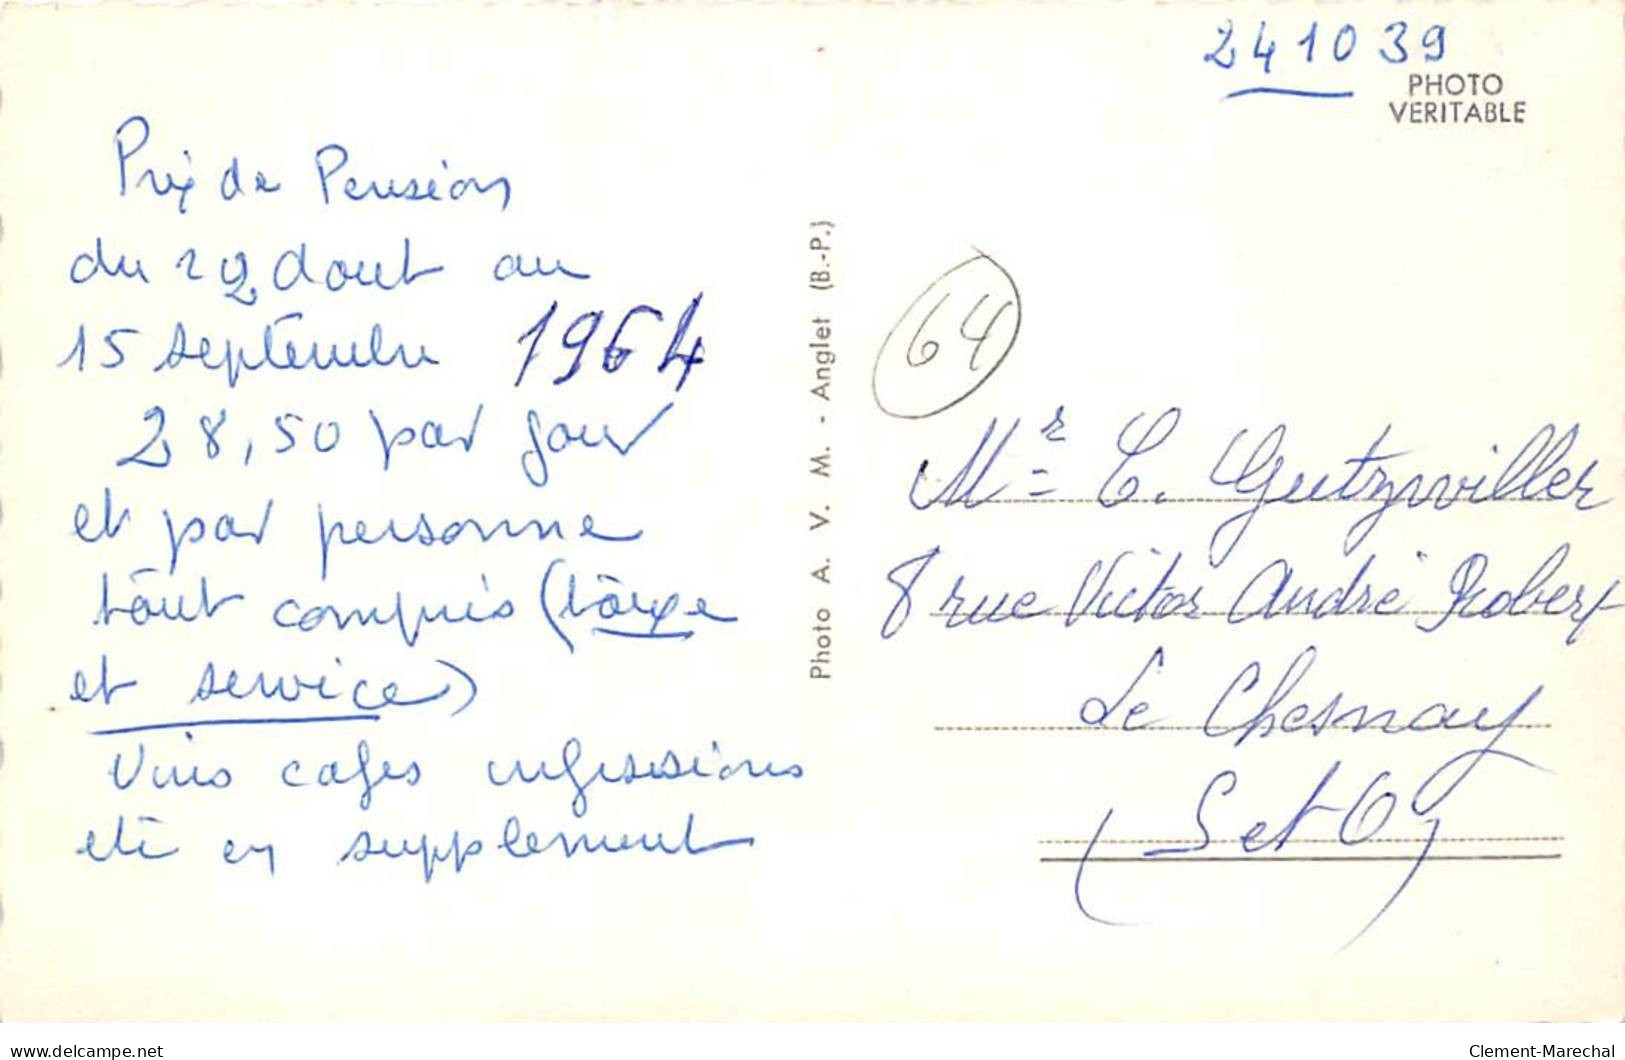 241039
PHOTO
VERITABLE
Prix de Pension
du 29 août au
15 septembre 1964
28,50 par jour
et par personne
tout compris (taxe
et service)
Vins cafés infusions
etc en supplement
Photo A. V. M. - Anglet (B.-P.)
64
Mr C. Gutzwiller
8 rue Victor André Robert
Le Chesnay
(S et O)
delcampe.net
Clement-Marechal